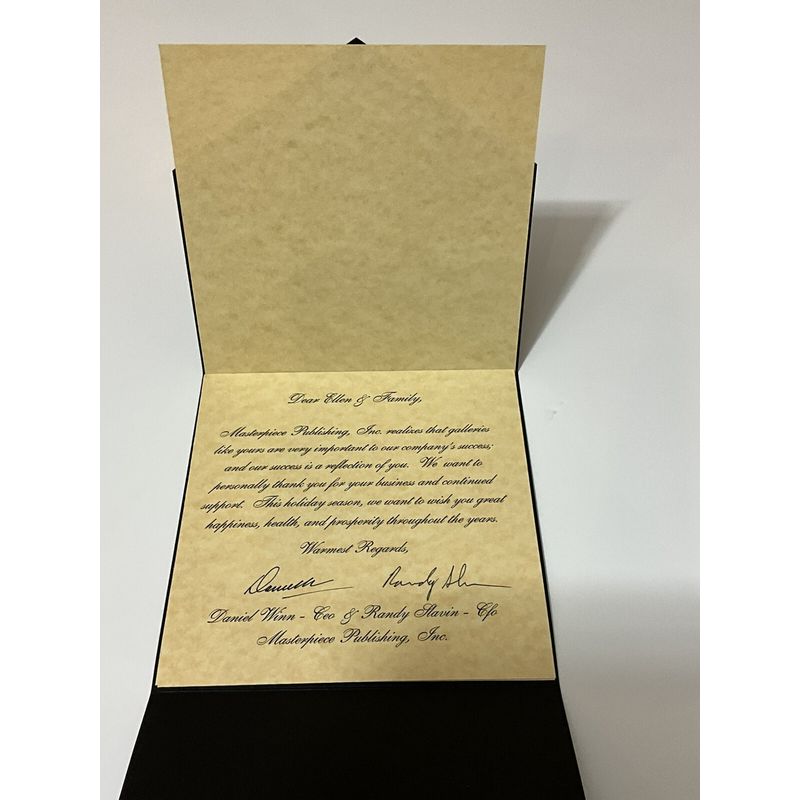 Dear Ellen & Family,
Masterpiece Publishing, Inc. realizes that galleries
like yours are very important to our company's success;
and our success is a reflection of you. We want to
personally thank you for your business and continued
support. This holiday season, we want to wish you great
happiness, health, and prosperity throughout the years.
Warmest Regards,
Randy
Daniel Winn - Ceo & Randy Slavin - Cfo
Masterpiece Publishing, Inc.